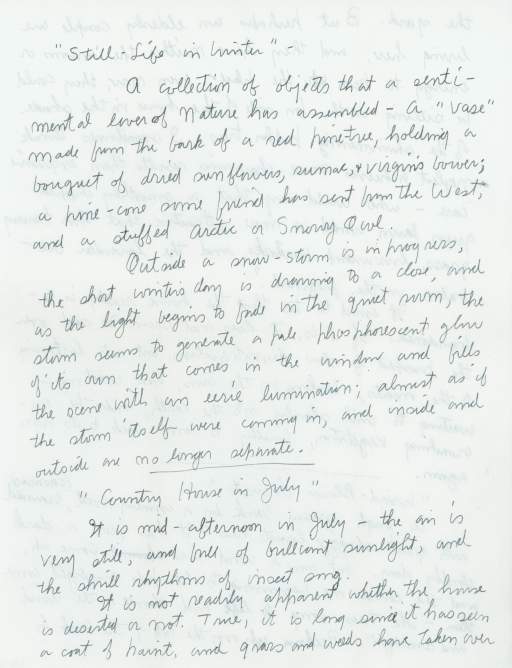 "Still-Life in Winter" -
A collection of objects that a senti-
mental lover of Nature has assembled - A "vase"
made from the bark of a red pinetree, holding a
bouquet of dried sunflowers, sumac, & virgin's bower;
a pine-cone some friend has sent from the West,
and a stuffed Arctic or Snowy Owl.
Outside a snow-storm is in progress,
the short winter's day is drawing to a close, and
as the light begins to fade in the quiet room, the
storm seems to generate a pale phosphorescent glow
of its own that comes in the window and fills
the scene with an eerie lumination; almost as if
the storm itself were coming in, and inside and
outside are no longer separate.
"Country House in July"
It is mid-afternoon in July - the air is
very still, and full of brilliant sunlight, and
the shrill rhythms of insect song.
It is not readily apparent whether the house
is deserted or not. True, it is long since it has seen
a coat of paint, and grass and weeds have taken over